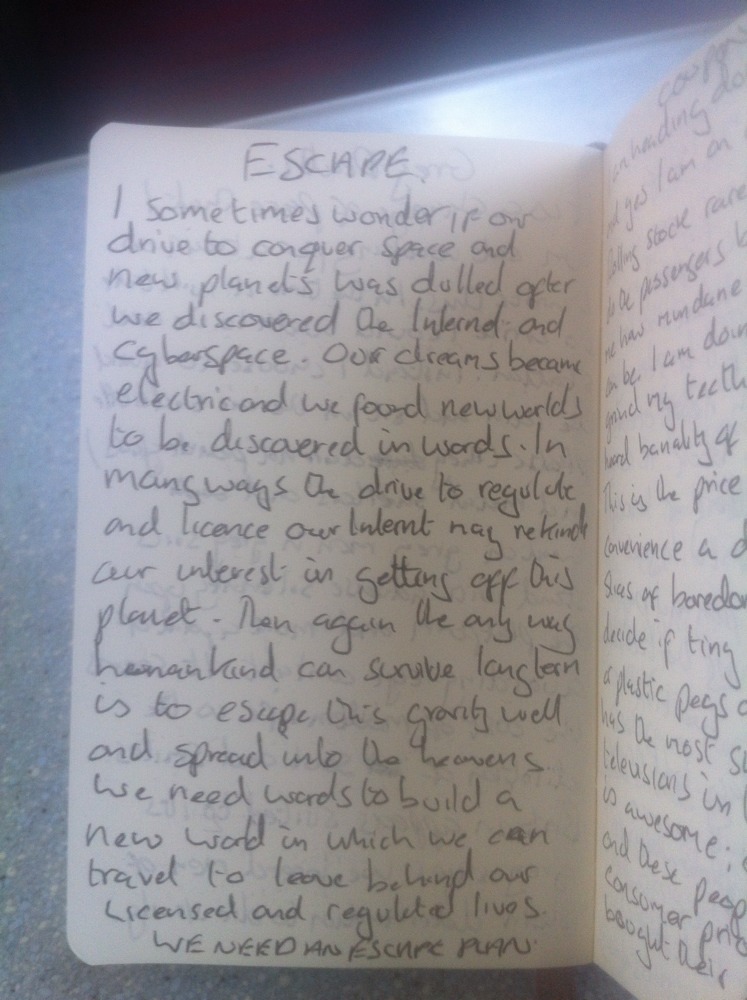 ESCAPE.
I sometimes wonder if our
drive to conquer space and
new planets was dulled after
we discovered the Internet and
Cyberspace. Our dreams became
electric and we found new worlds
to be discovered in words. In
many ways the drive to regulate
and licence our Internt may rekindle
our interest in getting off this
planet. Then again the only way
humankind can survive long term
is to escape this gravity well
and spread into the heavens.
We need words to build a
new world in which we can
travel to leave behind our
Licensed and regulated lives.
WE NEED AN ESCAPE PLAN.
coupon
handing do
and yes I am on
Rolling stock rare
to the passengers
me how mundane
can be. I am down
grind my teeth
banality of
This is the price
Convenience a
of boredom
decide if tiny
of plastic pegs
has the most
televisions in
is awesome;
and these peop
consumer pric
bought their